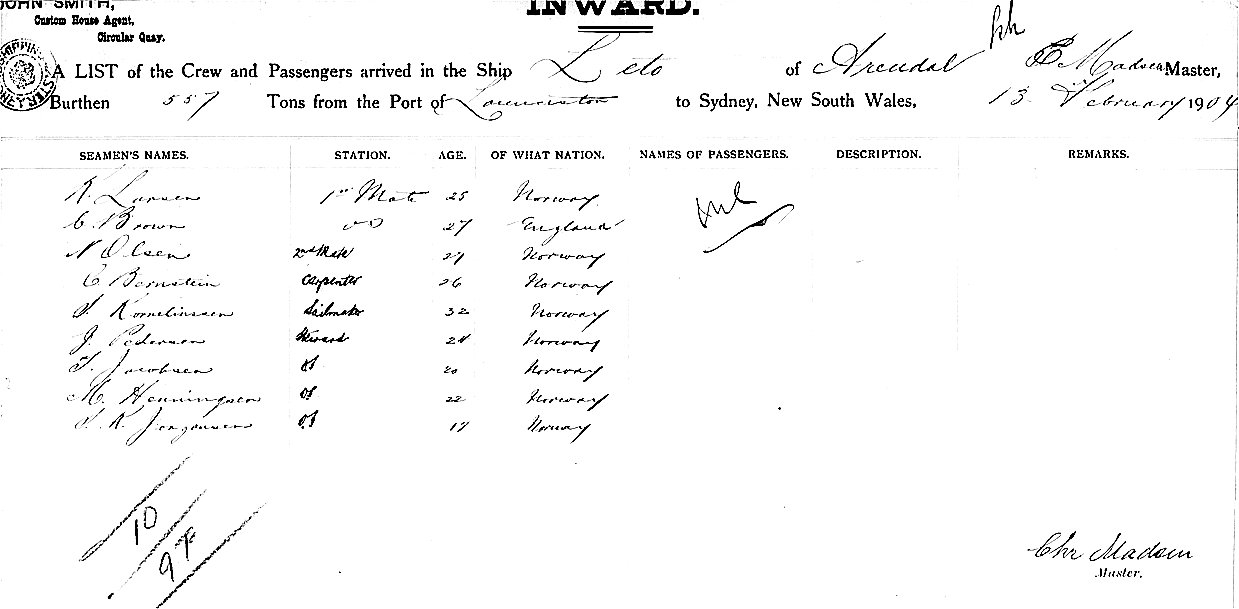 JOHN SMITH,
Custom House Agent,
Circular Quay.
INWARD.
A LIST of the Crew and Passengers arrived in the Ship Leto of Arendal C Madsen Master,
Burthen 557 Tons from the Port of Launceston to Sydney, New South Wales, 13 February 1904
SEAMEN'S NAMES. STATION. AGE. OF WHAT NATION. NAMES OF PASSENGERS. DESCRIPTION. REMARKS.
K. Larsen 1st Mate 25 Norway nil
C. Brown do 27 England
N Olsen 2nd Mate 27 Norway
C Bernstein Carpenter 26 Norway
T. Kornelinssen Sailmaker 32 Norway
J. Pedersen Steward 28 Norway
T. Jacobsen 20 Norway
M. Henningsen OS 22 Norway
T. K. Jorgensen OS 17 Norway
10
97
Chr Madsen
Master.